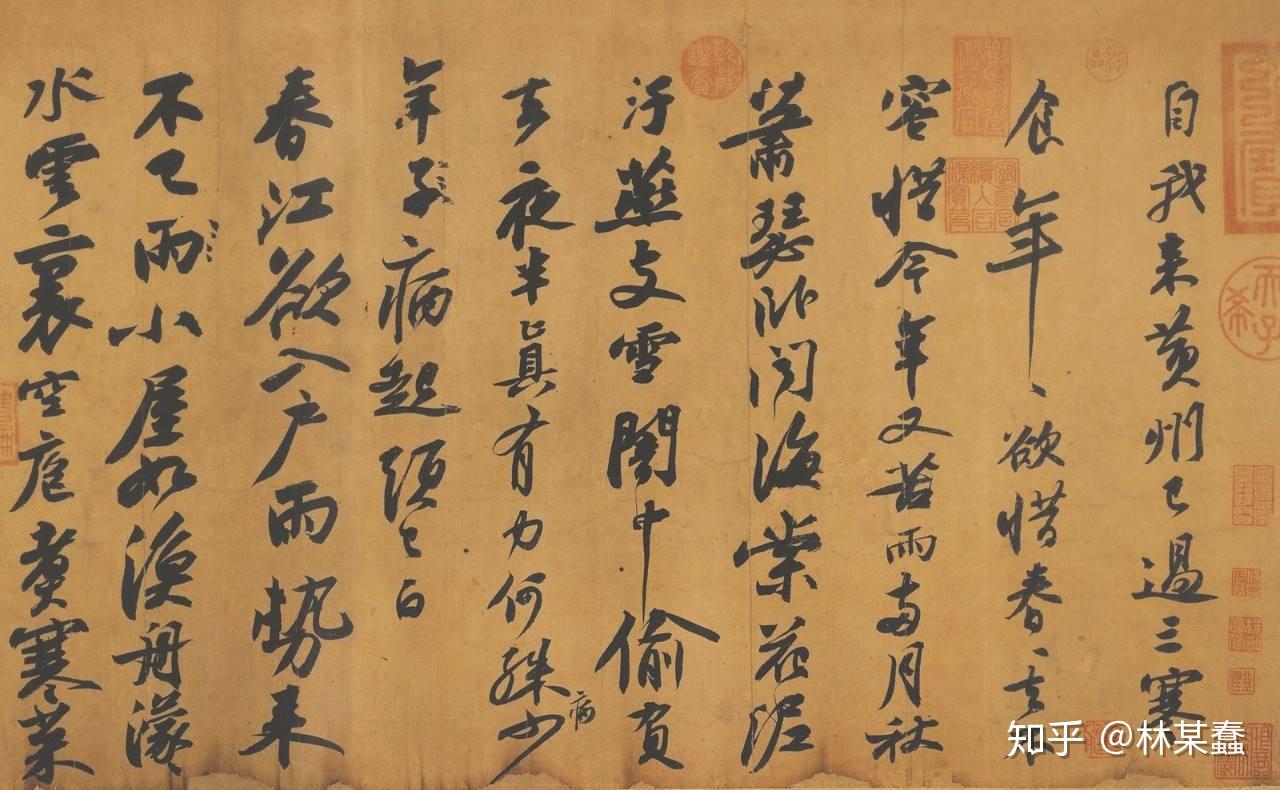 自我來黃州已過三寒
食年、欲惜春、去不
容惜今年又苦雨兩月秋
蕭瑟臥聞海棠花泥
汙燕支雪闇中偷負
去夜半真有力何殊少
病
年子病起頭已白
春江欲入戶雨勢來
不已雨小屋如漁舟濛
水雲裏空庖煮寒菜
知乎 @林某蠢